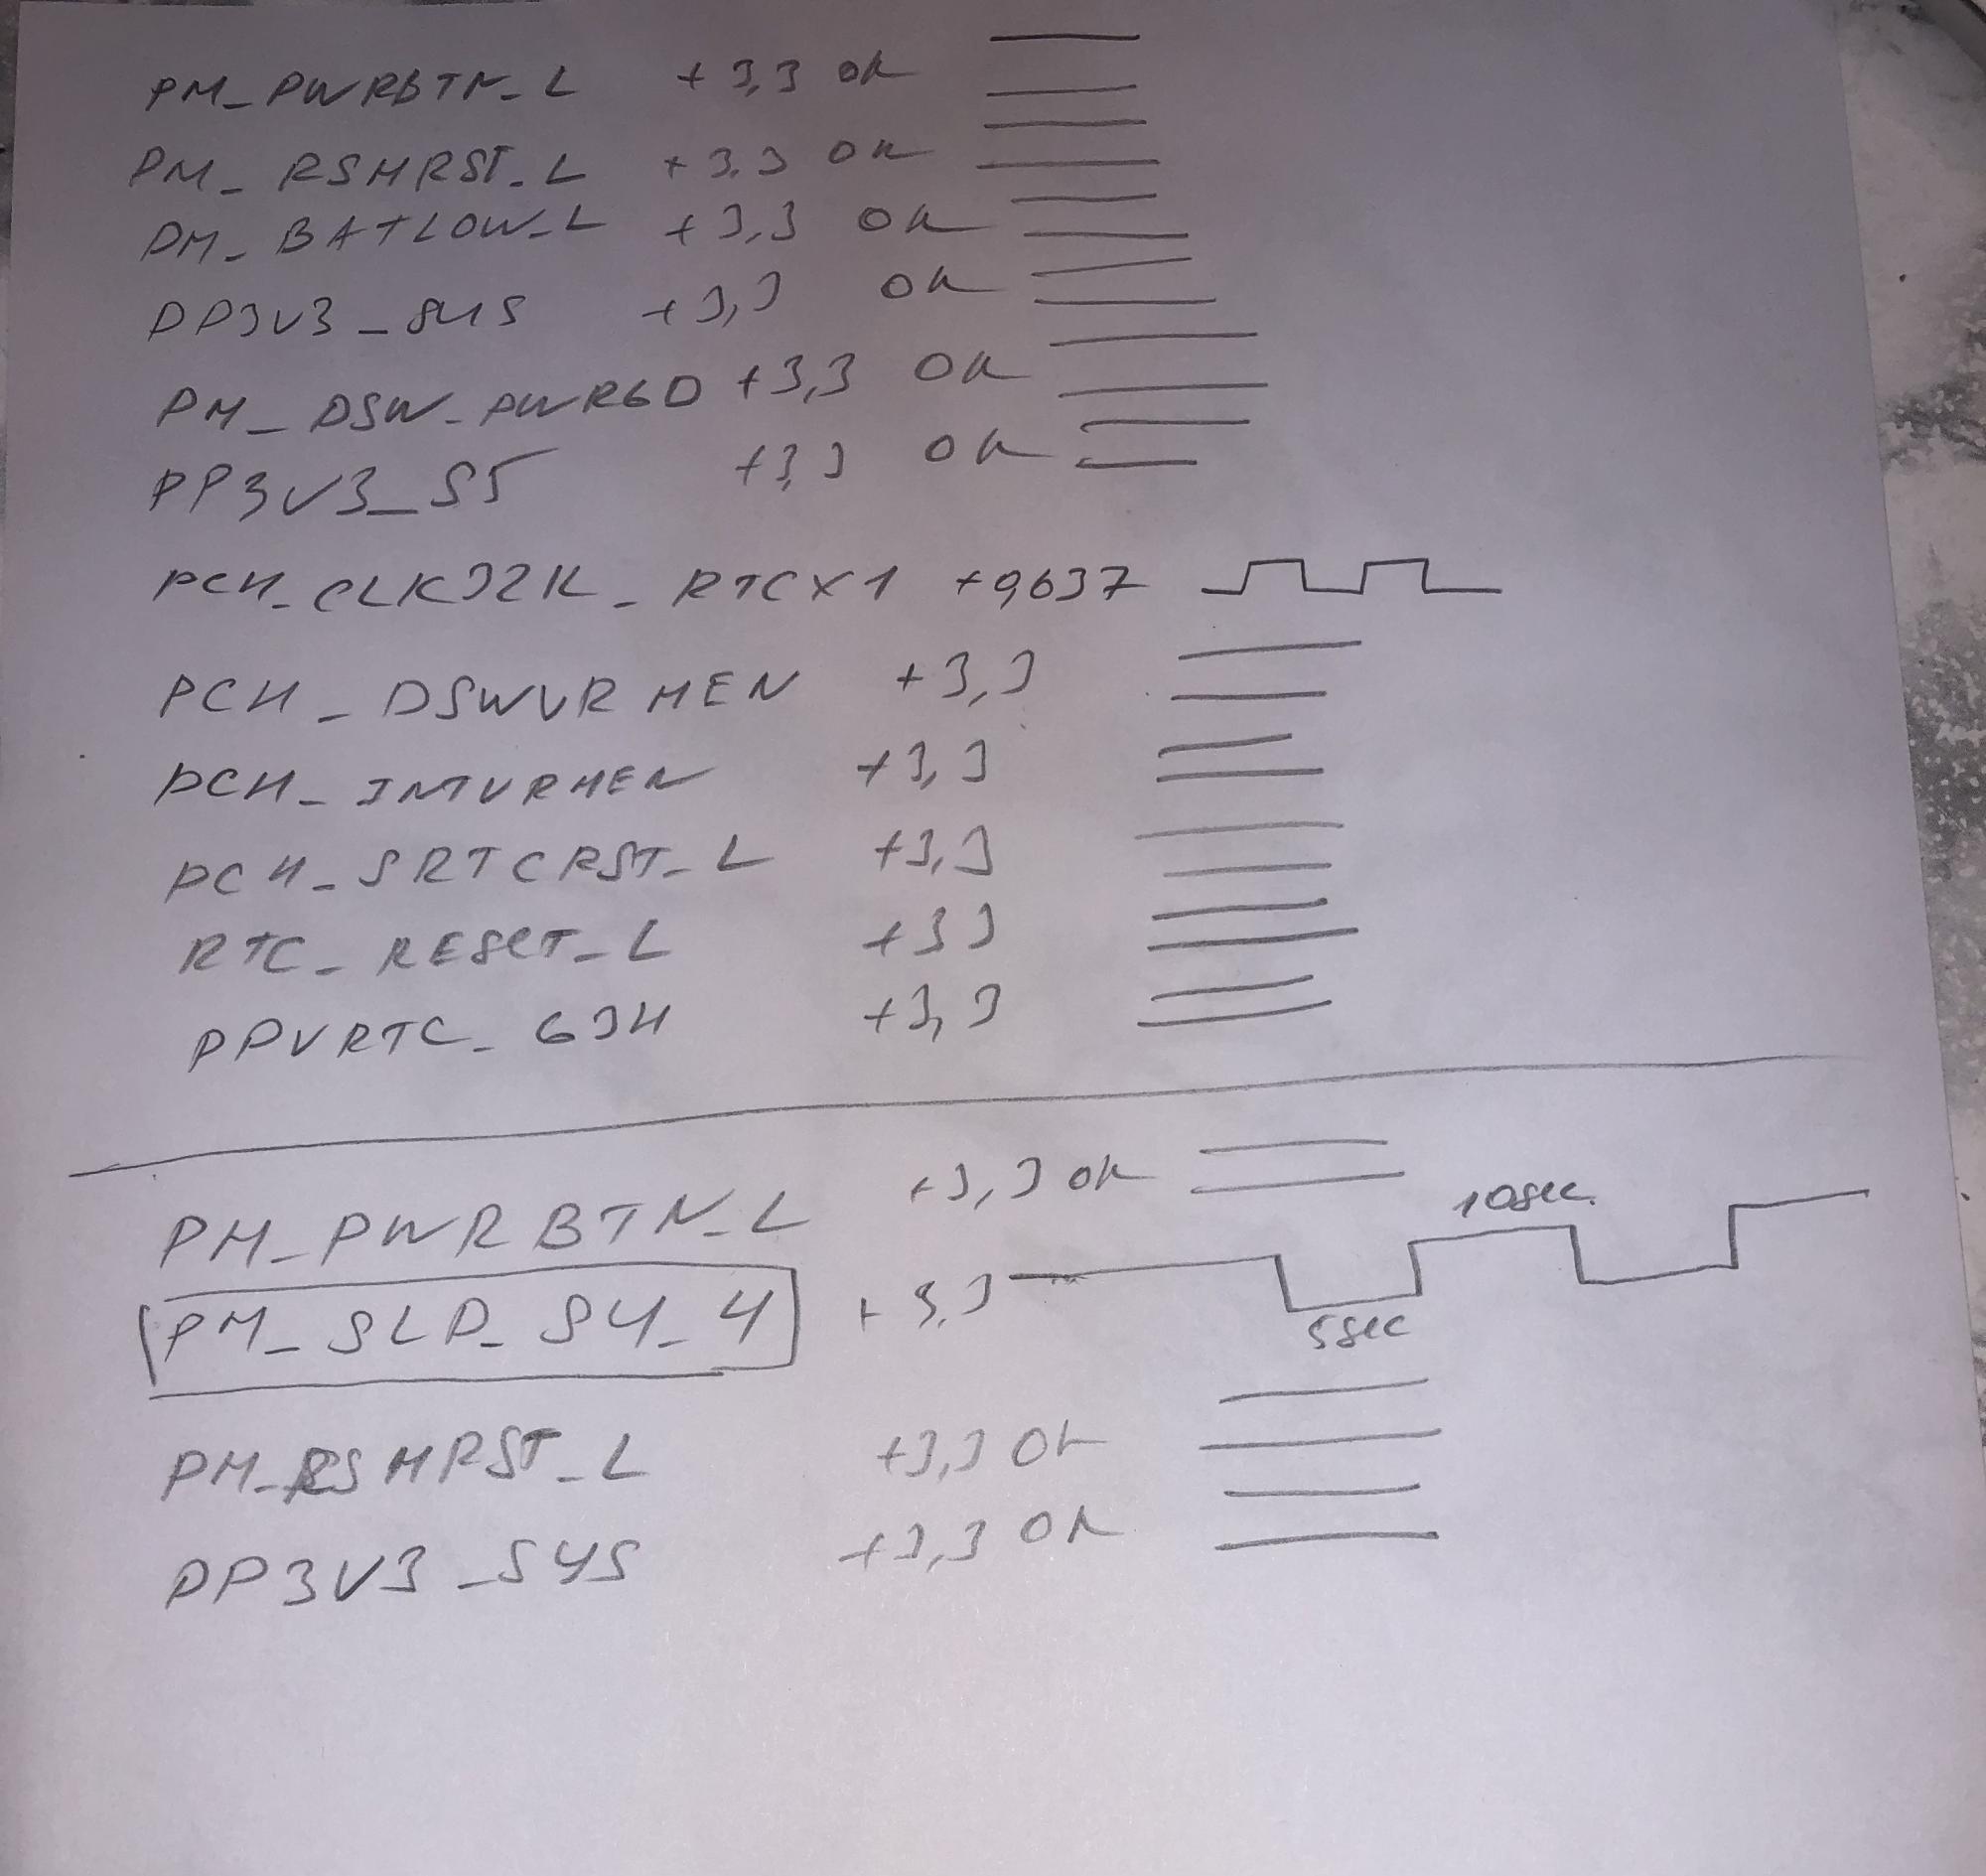 PM_PWRBTN_L +3,3 OK
PM_RSMRST_L +3.3 OK
PM_BATLOW_L +3,3 OK
PP3V3_SUS +3,3 OK
PM_DSW_PWRGD +3,3 OK
PP3V3_S5 +3,3 OK
PCH_CLK32K_RTCX1 +0,637
PCH_DSWVRMEN +3,3
PCH_INTVRMEN +3,3
PCH_SRTCRST_L +3,3
RTC_RESET_L +33
PPVRTC_G3H +3,3
PM_PWRBTN_L +3,3 OK
10sec.
PM_SLP_S4_4 +3,3
5sec
PM_RSMRST_L +3,3 OK
PP3V3_SYS +3,3 OK